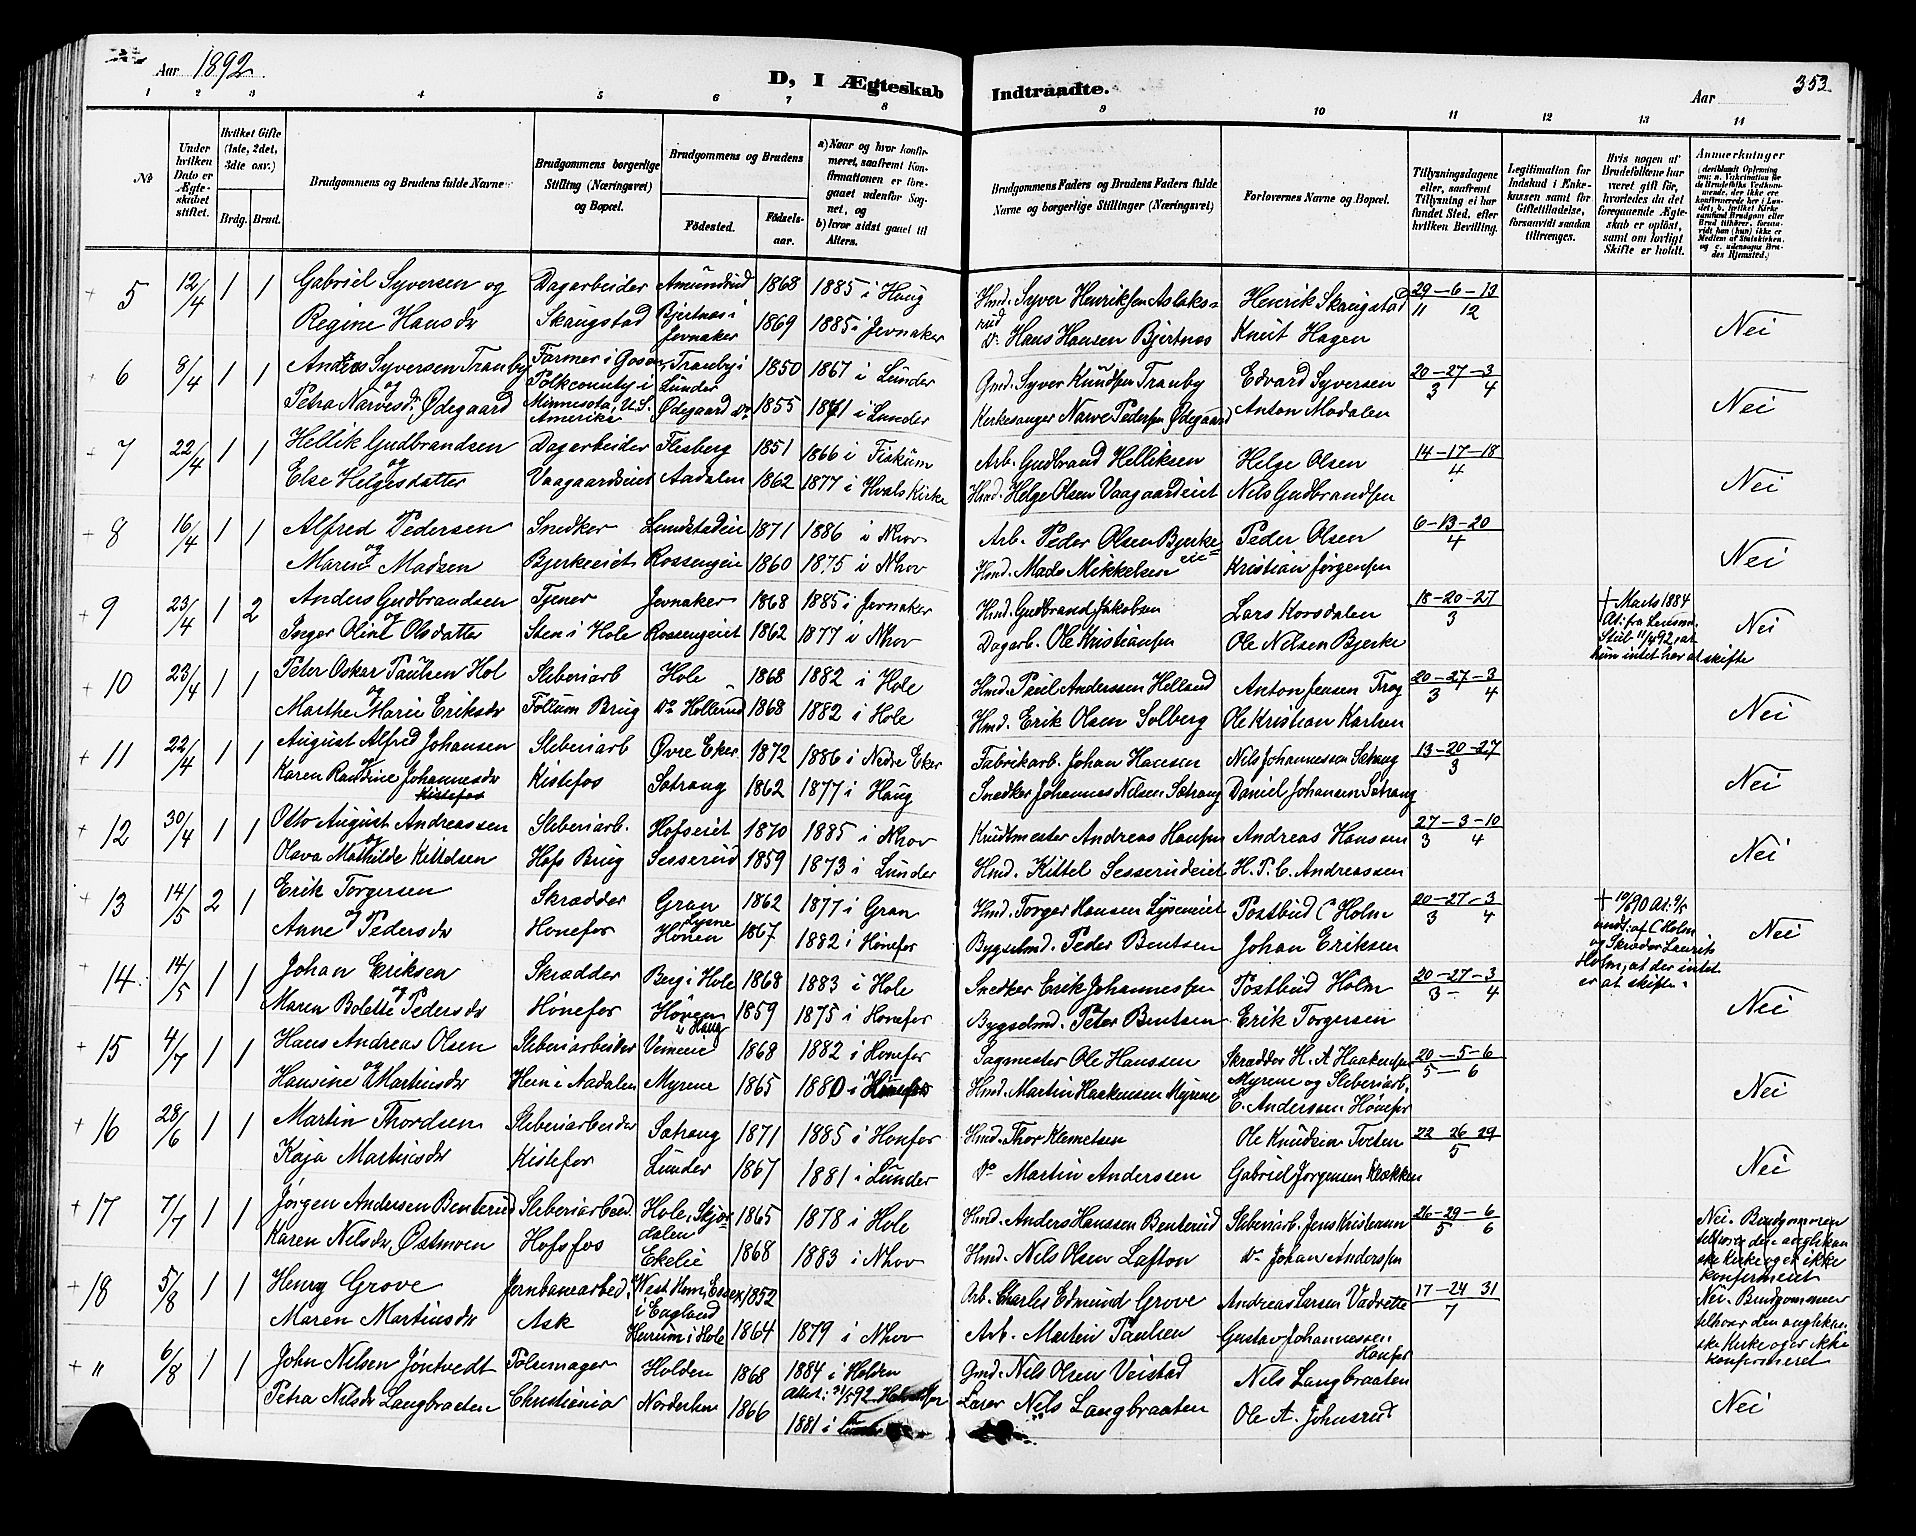 Aar 1892
D, I Ægteskab Indtraadte.
Aar 353
1 2 3 4 5 6 7 8 9 10 11 12 13 14
No
Under hvilken Dato er Ægteskabet stiftet.
Hvilket Gifte (1ste, 2det, 3dte osv.)
Brdg. Brud.
Brudgommens og Brudens fulde Navne
Brudgommens borgerlige Stilling (Næringsvei) og Bopæl.
Brudgommens og Brudens
Fødested. Fødselsaar.
a) Naar og hvor konfirmeret, saafremt Konfirmationen er foregaaet udenfor Sognet, og
b) hvor sidst gaaet til Alters.
Brudgommens Faders og Brudens Faders fulde Navne og borgerlige Stillinger (Næringsvei)
Forlovernes Navne og Bopæl.
Tillysningsdagene eller, saafremt Tillysning ei har fundet Sted, efter hvilken Bevilling.
Legitimation for Indskud i Enkekassen samt for Giftetilladelse, forsaavidt saadan tiltrænges.
Hvis nogen af Brudefolkene har været gift før, hvortedes da det foregaaende Ægteskab er opløst, samt om lovligt Skifte er holdt.
Anmerkninger
5 12/4 1 1 Gabriel Syversen og Dagarbeider Amundrud 1868 1885 i Haug Hmd. Syver Henriksen Aslaksrud Henrik Skaugstad 29-6-13
Regine Hansdr Skaugstad Bjertnæs i Jevnaker 1869 1885 i Jevnaker Do Hans Hansen Bjertnæs Knut Hagen 11 12 Nei
6 8/4 1 1 Andreas Syversen Tranby Farmer i Tranby i Lunder 1850 1867 i Lunder Gmd. Syver Knudsen Tranby Edvard Syversen 20-27-3
og Petra Narvesd. Ødegaard Polkcounty i Minnesota, U.S. Amerika Ødegaard Do 1855 1871 i Lunder Kirkesanger Narve Pedersen Ødegaard Anton Modalen 3 4 Nei
7 22/4 1 1 Hellik Gudbrandsen Dagarbeider Flesberg 1851 1866 i Fiskum Arb. Gudbrand Helliksen Helge Olsen 14-17-18
og Else Helgesdatter Vaagaardseiet Aadalen 1862 1877 i Hvals Kirke Hmd. Helge Olsen Vaagaardeiet Nils Gudbrandsen 4 Nei
8 16/4 1 1 Alfred Pedersen Snedker Lundstadeie 1871 1886 i Nhov Arb. Peder Olsen Bjerkeeie Peder Olsen 6-13-20
og Maren Madsen Bjerkeeiet Rossengeie 1860 1875 i Nhov Hmd. Mads Mikkelsen Kristian Jørgensen 4 Nei
9 23/4 1 2 Anders Gudbrandsen Tjener Jevnaker 1868 1885 i Jevnaker Hmd. Gudbrand Jakobsen Lars Korsdalen 18-20-27
og Inger Oline Olsdatter Sten i Hole Rossengeiet 1862 1877 i Nhov Dagarb. Ole Kristiansen Ole Nilsen Bjerke 3 Nei
† Marts 1884 At: fra Lensm. 11/4 92, at hun intet har at skifte
10 23/4 1 1 Peter Oskar Paulsen Hol Sliberiarb Hole 1868 1882 i Hole Hmd. Paul Anderssen Helland Anton Jensen Trog 20-27-3
og Marthe Marie Eriksdr Follum Brug Do Hollerud 1868 1882 i Hole Hmd. Erik Olsen Solberg Ole Kristian Karlsen 3 4 Nei
11 22/4 1 1 August Alfred Johansen Sliberiarb Øvre Eker 1872 1886 i Nedre Eker Fabrikarb. Johan Hansen Nils Johannessen Sætrang 13-20-27
og Karen Randine Johannesdr Kistefos Kistefos Sætrang 1862 1877 i Haug Snedker Johannes Nilsen Sætrang Daniel Johansen Sætrang 3 Nei
12 30/4 1 1 Otto August Andreassen Sliberiarb. Hofseiet 1870 1885 i Nhov Andreas Hansen Andreas Hanssen 27-3-10
og Olava Mathilde Kittelsen Hofs Brug Sesserud 1859 1873 i Lunder Hmd. Kittel Sesserudeiet H. P. C. Andreassen 3 4 Nei
13 14/5 2 1 Erik Torgersen Skrædder Gran 1862 1877 i Gran Hmd. Torger Hansen Lyseneiet Postbud C Holm 20-27-3
og Anne Pedersdr Honefos Lysne Hønen 1867 1882 i Hønefos Bygselmd. Peder Bentsen Johan Eriksen 3 4 Nei
† 10/6 90 At: 9/5 indt: af C Holm og Skræder Laurits Holm, at der intet er at skifte
14 14/5 1 1 Johan Eriksen Skrædder Berg i Hole 1868 1883 i Hole Snedker Erik Johannessen Postbud Holm 20-27-3
og Maren Bolette Pedersdr Hønefos Hønen i Haug 1859 1875 i Honefos Bygselmd. Peter Bentsen Erik Torgersen 3- 4 Nei
15 4/7 1 1 Hans Andreas Olsen Sliberiarbeider Veimeie 1868 1882 i Honefos Sagmester Ole Hanssen Skrædder H. A Haakensen 20-5-6
og Hansine Martinsdr Hen i Aadalen Myrene 1865 1880 i Hønefos Hmd. Martin Haakensen Myrene Myrene og Sliberiarb. E. Anderssen Hønefos 5-6 Nei
16 28/6 1 1 Martin Thordsen Sliberiarbeider Sætrang 1871 1885 i Honefos Hmd. Thor Klemetsen Ole Knudsen Tveten 22 26 29
Kaja Martinsdr Kistefos Lunder 1867 1881 i Lunder Do Martin Anderssen Gabriel Jørgensen Kløkken 5 Nei
17 7/7 1 1 Jørgen Andersen Benterud Sliberiarbeid. Hole, Skjørdalen 1865 1878 i Hole Hmd. Anders Hanssen Benterud Sliberiarb. Jens Kristensen 26-29-6
Karen Nilsdr Østmoen Hofsfos Ekelie 1868 1883 i Nhov Hmd. Nils Olsen Lafton Do Johan Anderssen 5 6
Nei - Brudgommen tilhører den anglikanske Kirke og er ikke konfirmeret
18 5/8 1 1 Henry Grove Jernbanearbed. West Ham, Essex i England 1852 Arb. Charles Edmund Grove Andreas Larsen Vadrette 17-24 31
Maren Martinsdr Ask Herrum i Hole 1864 1879 i Nhov Arb. Martin Paulsen Gustav Johannessen Hønefos 7
Nei - Brudgommen tilhører den anglikanske Kirke og er ikke konfirmeret
" 6/8 1 1 John Nilsen Jontvedt Pølsemager Holden 1868 1884 i Holden Gmd. Nils Olsen Veistad Nils Langbraaten
Petra Nilsdr Langbraaten Christiania Norderhov 1866 Attest: 31/5 92 1881 i Lunder Lærer Nils Langbraaten Ole A. Johnsrud Nei